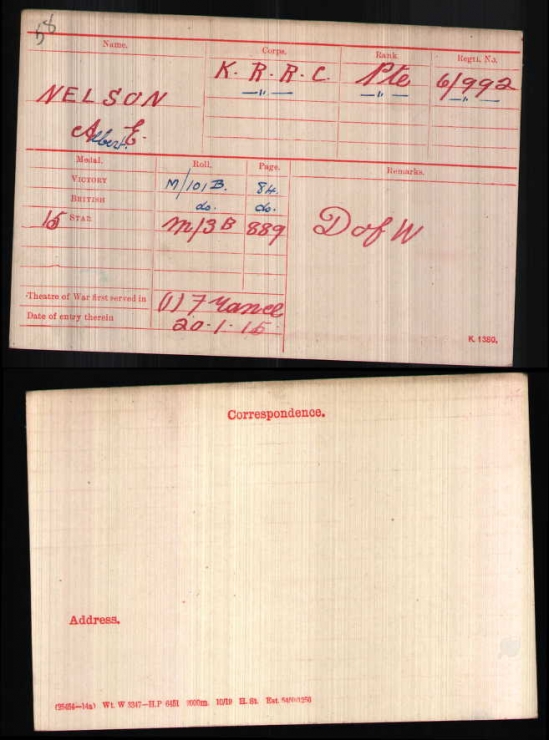 58
Name. Corps. Rank. Regtl. No.
K. R. R. C. Pte 6/992
NELSON —"— —"— —"—
Albert E.
Medal. Roll. Page. Remarks.
VICTORY M/101B. 84.
BRITISH do. do.
15 STAR M/3B 889 D of W
Theatre of War first served in (1) France
Date of entry therein 20.1.15
K. 1380.
Correspondence.
Address.
Wt. W 5347—H.P 10/19 H. St.